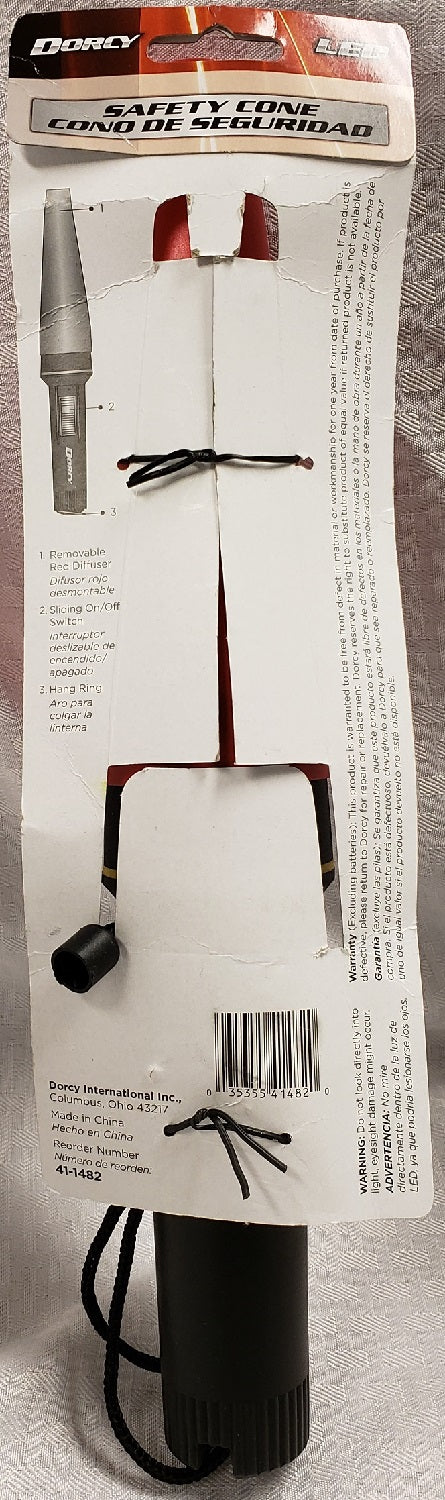 DORCY
LED
SAFETY CONE
CONO DE SEGURIDAD
1
2
DORCY
3
1. Removable
Red Diffuser
Difusor rojo
desmontable
2. Sliding On/Off
Switch
Interruptor
deslizable de
encendido/
apagado
3. Hang Ring
Aro para
colgar la
linterna
Warranty (Excluding batteries): This product is warranted to be free from defect in material or workmanship for one year from date of purchase. If product is
defective, please return to Dorcy for repair or replacement. Dorcy reserves the right to substitute product of equal value if returned product is not available.
Garantía (excluye las pilas): Se garantiza que este producto estará libre de defectos en los materiales o la mano de obra durante un año a partir de la fecha de
compra. Si el producto está defectuoso, devuélvalo a Dorcy para que sea reparado o reemplazado. Dorcy se reserva el derecho de sustituir el producto por
uno de igual valor si el producto devuelto no está disponible.
WARNING: Do not look directly into
light, eyesight damage might occur.
ADVERTENCIA: No mire
directamente dentro de la luz de
LED ya que podría lesionarse los ojos.
0 35355 41482 0
Dorcy International Inc.,
Columbus, Ohio 43217
Made in China
Hecho en China
Reorder Number
Número de reorden:
41-1482